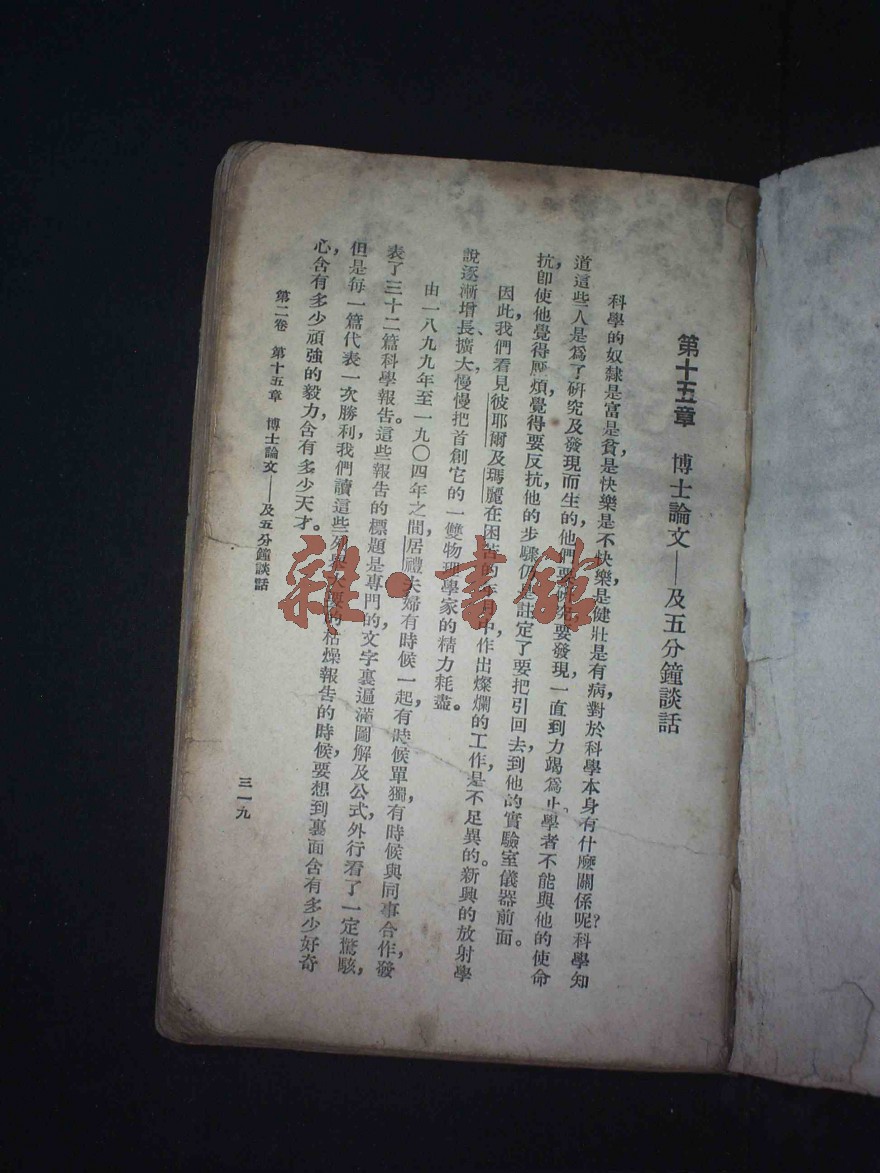 第十五章 博士論文——及五分鐘談話
科學的奴隸是富是貧,是快樂是不快樂,是健壯是有病,對於科學本身有什麼關係呢?科學知
道這些人是爲了研究及發現而生的,他們要發現,一直到力竭爲止。學者不能與他的使命
抗,卽使他覺得厭煩,覺得要反抗,他的步驟註定了要把引回去到他的實驗室儀器前面。
因此,我們看見彼耶爾及瑪麗在困苦的中作出燦爛的工作,是不足異的。新興的放射學
說逐漸增長、擴大,慢慢把首創它的一雙物理學家的精力耗盡。
由一八九九年至一九〇四年之間,居禮夫婦有時候一起,有時候單獨,有時候與同事合作,發
表了三十二篇科學報告。這些報告的標題是專門的,文字裏遍滿圖解及公式,外行看了一定驚駭,
但是每一篇代表一次勝利,我們讀這些枯燥報告的時候,要想到裏面含有多少好奇
心,含有多少頑強的毅力,含有多少天才。
第二卷 第十五章 博士論文——及五分鐘談話
三一九
雜·書館